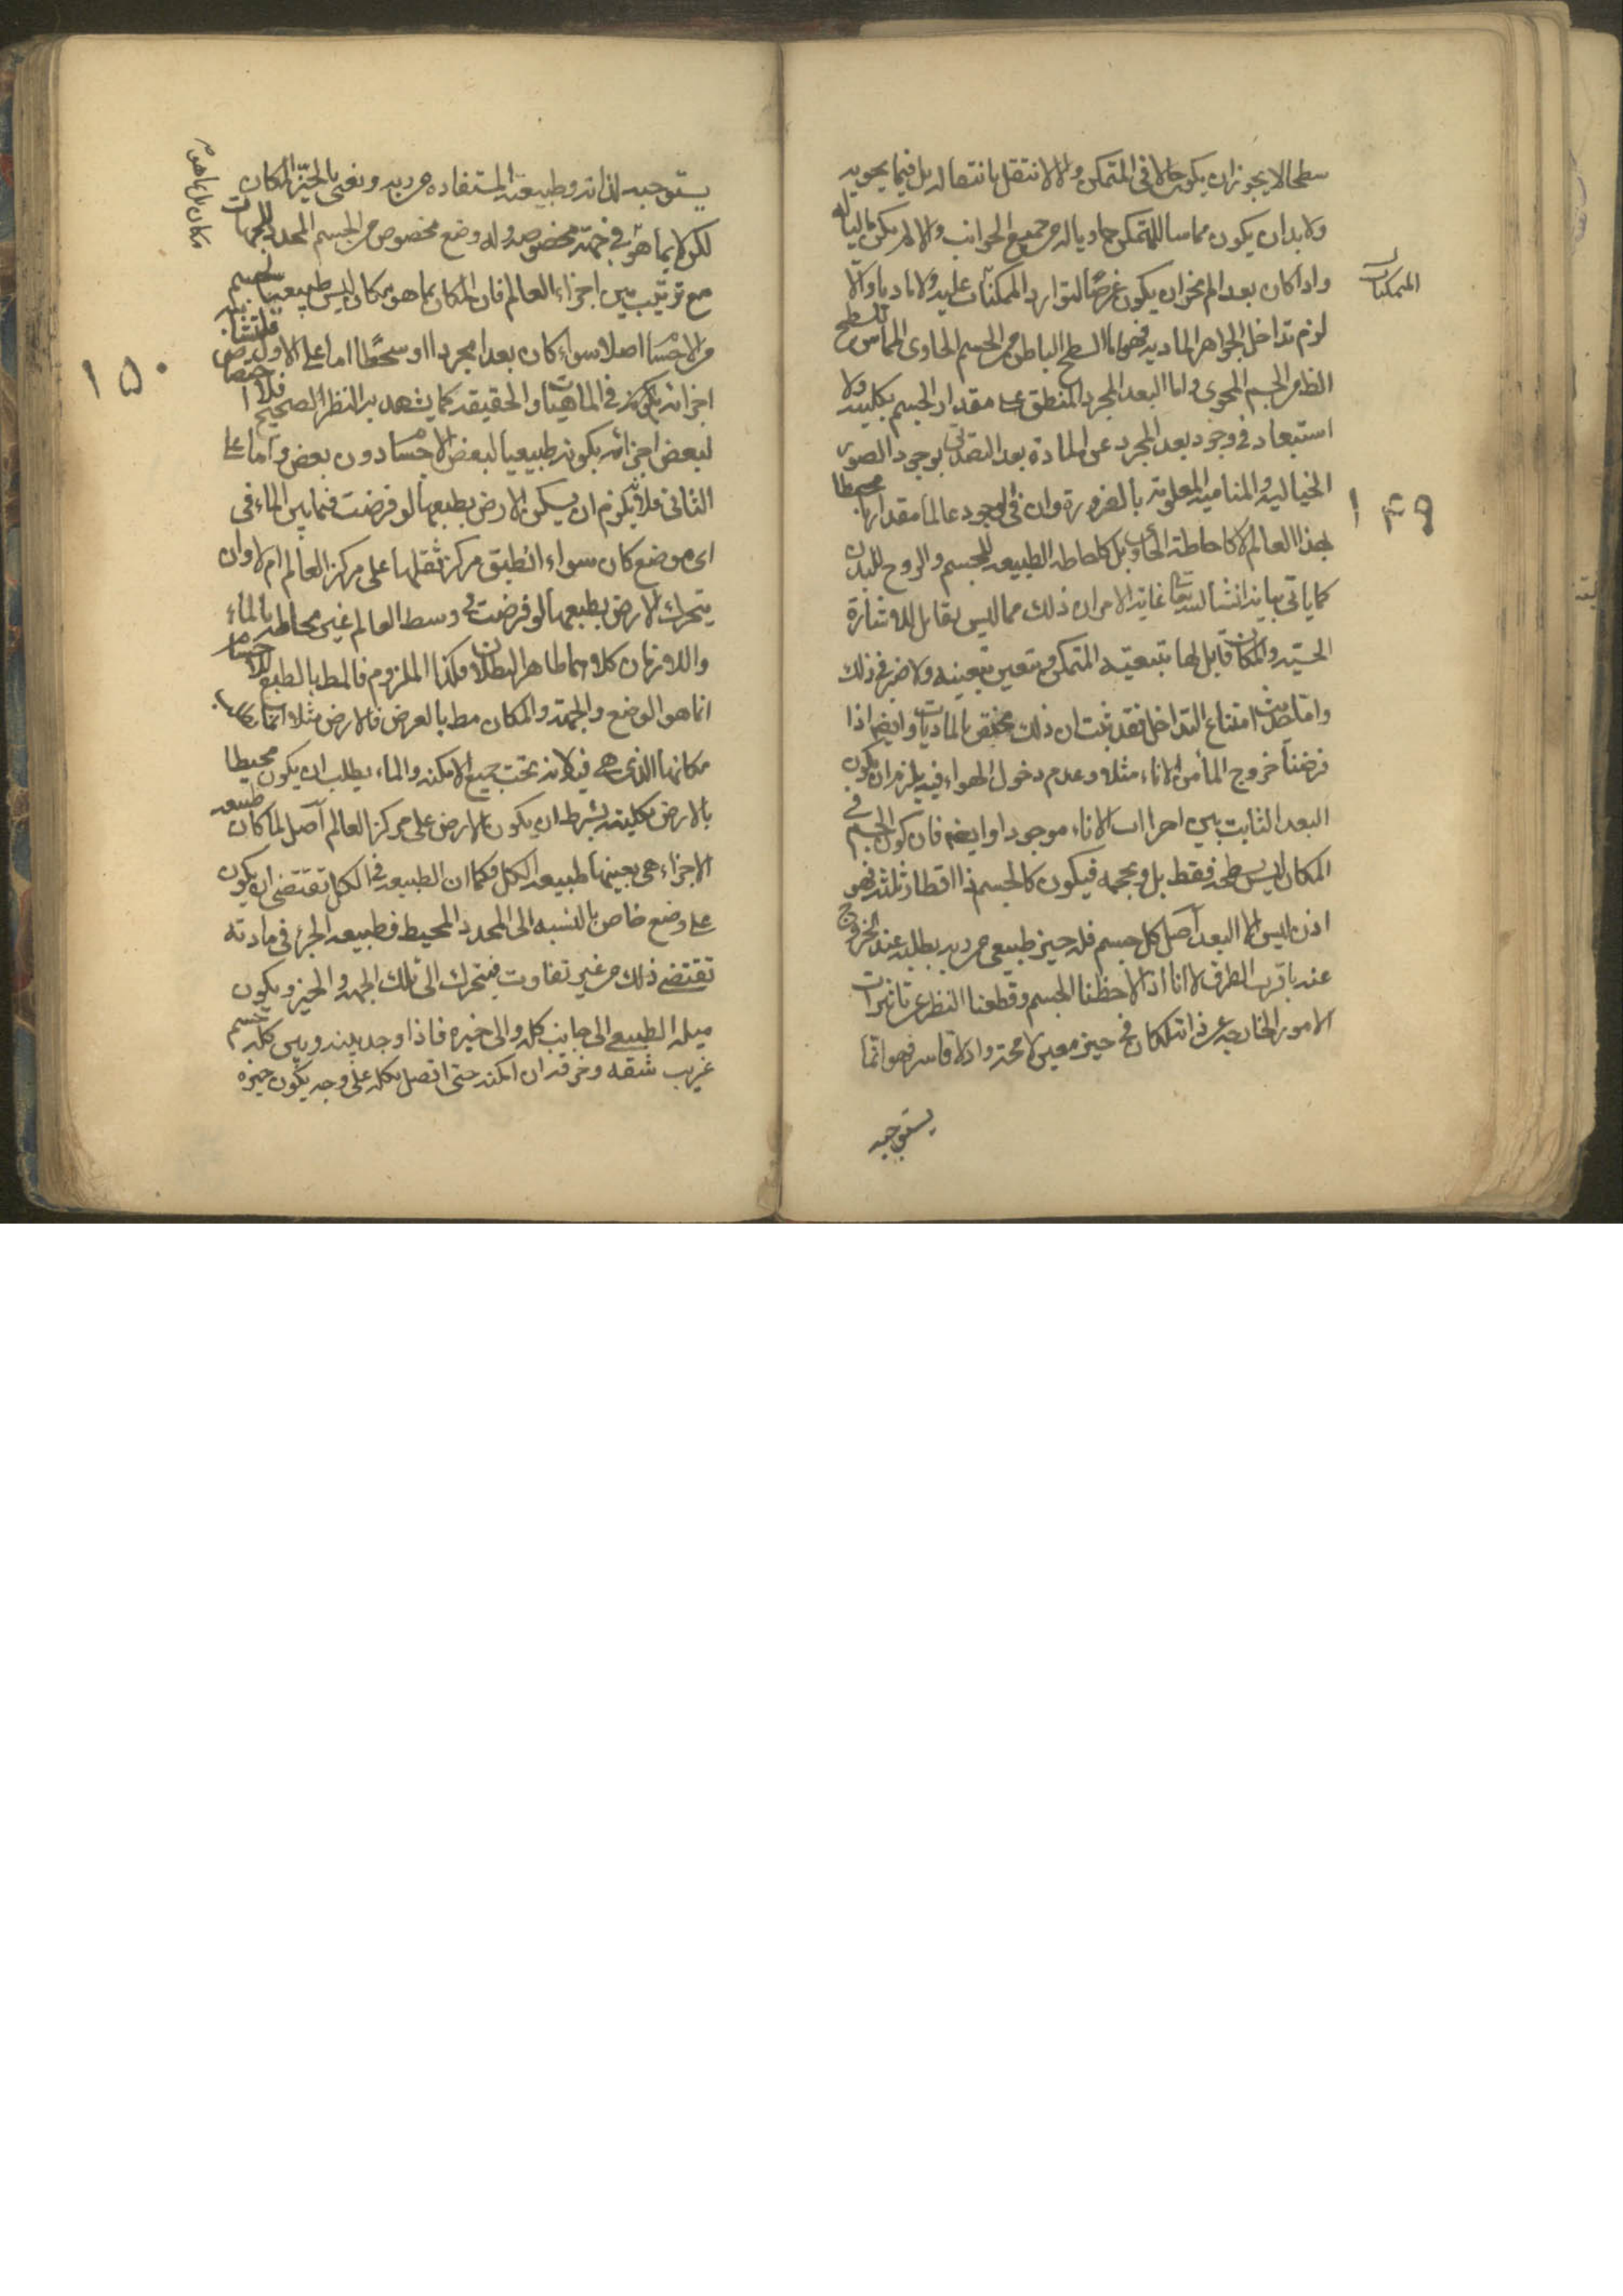 سطحا لا يجوز ان يكون حالا في المتمكن والا لانتقل بانتقاله بل فيما يحويه
ولا بد ان يكون مماسا للمتمكن حاويا له من جميع الجوانب والا لم يكن مالياله
واذا كان بعدا لم يجز ان يكون عرضا لتوارد الممكنات عليه ولا ماديا والا
المتمكنات
لزم تداخل الجواهر المادية فهو اما السطح الباطن من الجسم الحاوى المماس للسطح
الظاهر من الجسم المحوى واما البعد المجرد المنطبق على مقدار الجسم بكليته ولا
استبعاد في وجود بعد المجرد عن المادة بعد التصديق بوجود الصور
الخيالية والمنامية المعلومة بالضرورة وان في الوجود عالما مقداريا محيطا
۱۴۹
بهذا العالم لا كاحاطة الحاوى بل كاحاطه الطبيعه للجسم والروح للبدن
كما ياتى بيانه انشا الله تعا غاية الامر ان ذلك مما ليس يقابل للاشارة
الحسية والمكان قابل لها بتبعيته المتمكن ويتعين بتعينه ولا ضير في ذلك
واما حديث امتناع التداخل فقد ثبت ان ذلك مختص بالماديات وايضا اذا
فرضنا خروج الماء من الاناء مثلا وعدم دخول الهواء فيه يلزم ان يكون
البعد الثابت بين اطراف الاناء موجودا وايضا فان كون الجسم في
المكان ليس بسطحه فقط بل وبحجمه فيكون كالجسم ذا اقطار ثلثه فهو
اذن ليس الا البعد اصل كل جسم فله حيز طبيعى من ربه يطلبه عند الخروج
عنه باقرب الطرق لانا اذا لاحظنا الجسم وقطعنا النظر عن تاثيرات
الامور الخارجه عن ذاته لكان في حيز معين لا محة واذ لا قاسر فهو انما
يستوجبه
يستوجبه لذاته وطبيعته المستفاده من ربه ونعنى بالحيز المكان
لكن لا بما هو في جهة مخصوصه وله وضع مخصوص من الجسم المحدد للجهات
مع ترتيب بين اجزاء العالم فان المكان بما هو مكان ليس طبيعيا لجسم
من الاجسام اصلا سواء كان بعدا مجردا او سطحا اما على الاول فلتشابه
اجزائه المكونه في الماهيات والحقيقه كما يشهد به النظر الصحيح فلا اختصاص
۱۵۰
لبعض اجزائه بكونه طبيعيا لبعض الاجسام دون بعض واما على
الثانى فلانه يلزم ان يسكن الارض بطبعها لو فرضت فيما بين الماء في
اى موضع كان سواء انطبق مركز ثقلها على مركز العالم ام لا وان
يتحرك الارض بطبعها لو فرضت في وسط العالم غير محاطه بالماء
واللازمان كلاهما ظاهر البطلان فكذا الملزوم فالمط بالطبع للاجسام
انما هو الوضع والجهة والمكان مط بالعرض فالارض مثلا انما تطلب
مكانها الذى هى فيه لانه تحت جميع الامكنه والماء يطلب ان يكون محيطا
بالارض بكليته بشرط ان يكون الارض على مركز العالم اصل لما كان طبيعه
الاجزاء هى بعينها طبيعه الكل فكما ان الطبيعه في الكل تقتضى ان يكون
على وضع خاص بالنسبه الى المحدد المحيط فطبيعه الجزء في مادته
تقتضى ذلك من غير تفاوت فيتحرك الى تلك الجهه والحيز ويكون
ميله الطبيعى الى جانب كله والى حيزه فاذا وجد بينه وبين كله جسم
غريب شقه وخرقه ان امكنه حتى اتصل بكله على وجه يكون حيزه